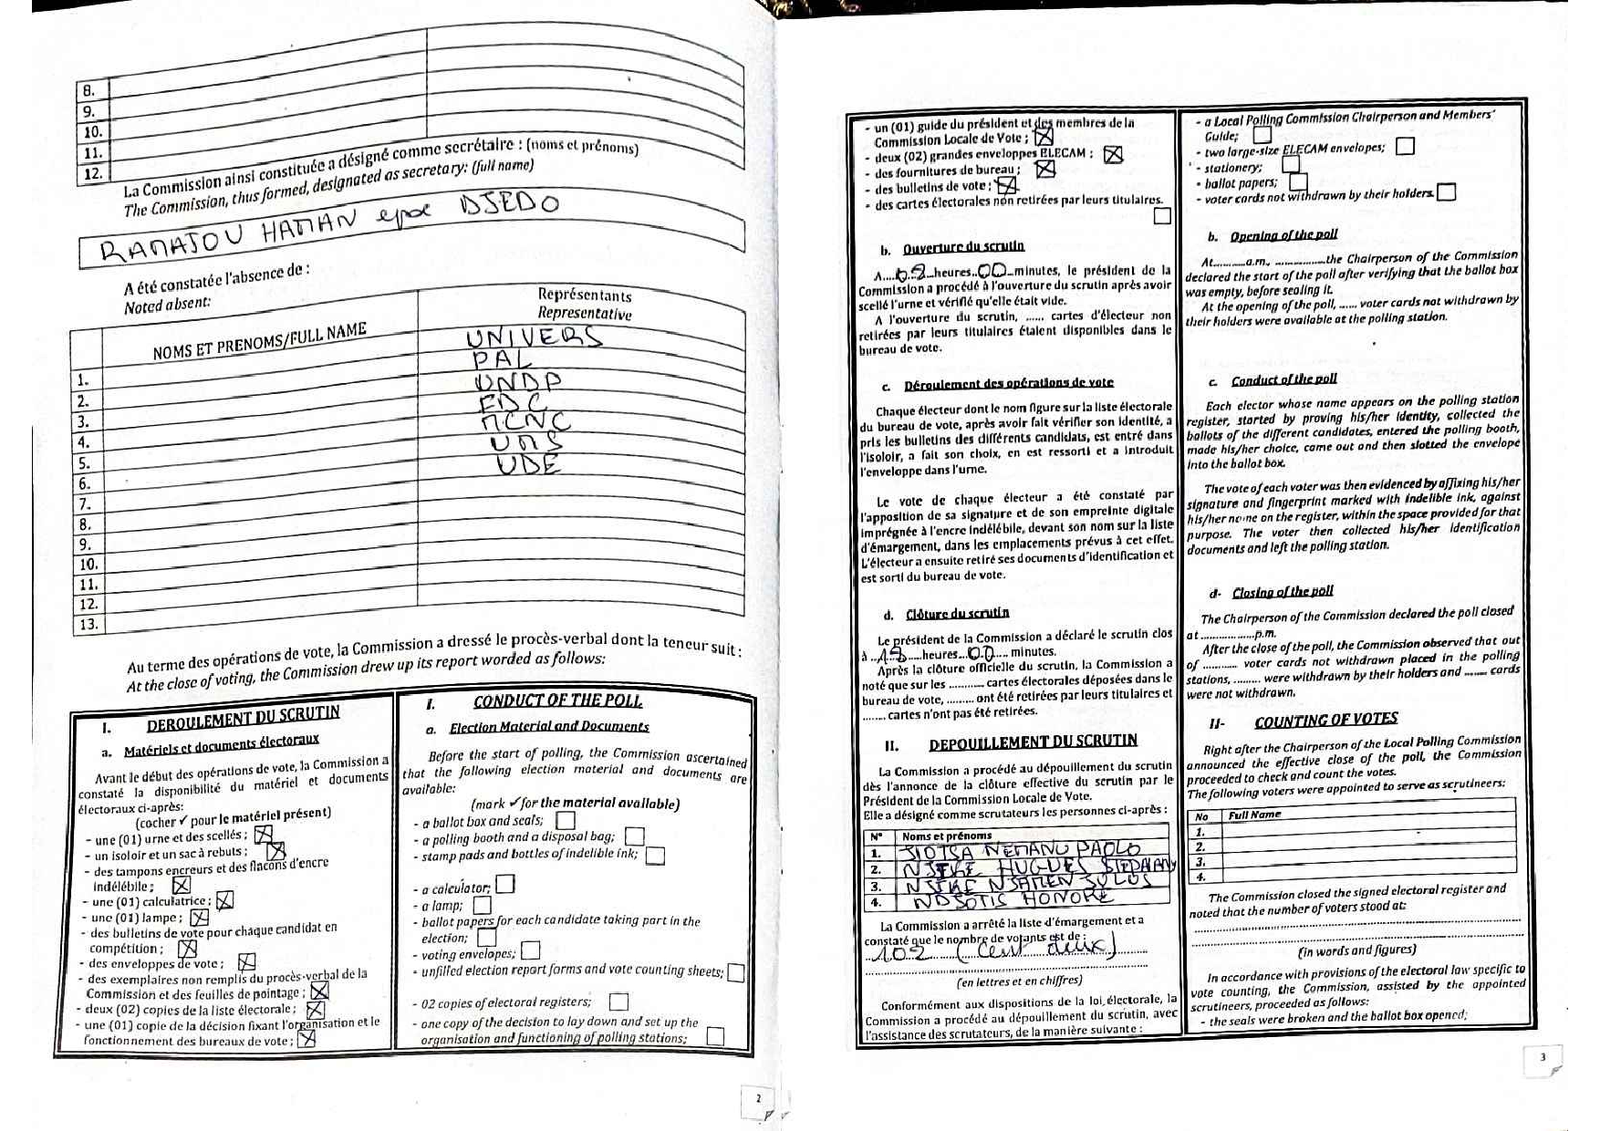 8.
9.
10.
11.
12.
La Commission ainsi constituée a désigné comme secrétaire : (noms et prénoms)
The Commission, thus formed, designated as secretary: (full name)
RAMATOU HAMAN epse DJEDO
A été constatée l'absence de :
Noted absent:
NOMS ET PRENOMS/FULL NAME
Représentants
Representative
UNIVERS
1. PAL
2. UNDP
3. FDC
4. MCNC
5. UMS
6. UDE
7.
8.
9.
10.
11.
12.
13.
Au terme des opérations de vote, la Commission a dressé le procès-verbal dont la teneur suit :
At the close of voting, the Commission drew up its report worded as follows:
I. DEROULEMENT DU SCRUTIN
a. Matériels et documents électoraux
Avant le début des opérations de vote, la Commission a
constaté la disponibilité du matériel et documents
électoraux ci-après:
(cocher ✓ pour le matériel présent)
- une (01) urne et des scellés ; ☒
- un isoloir et un sac à rebuts ; ☒
- des tampons encreurs et des flacons d'encre
indélébile ; ☒
- une (01) calculatrice ; ☒
- une (01) lampe ; ☒
- des bulletins de vote pour chaque candidat en
compétition ; ☒
- des enveloppes de vote ; ☒
- des exemplaires non remplis du procès-verbal de la
Commission et des feuilles de pointage ; ☒
- deux (02) copies de la liste électorale ; ☒
- une (01) copie de la décision fixant l'organisation et le
fonctionnement des bureaux de vote ; ☒
I. CONDUCT OF THE POLL
a. Election Material and Documents
Before the start of polling, the Commission ascertained
that the following election material and documents are
available:
(mark ✓ for the material available)
- a ballot box and seals; ☐
- a polling booth and a disposal bag; ☐
- stamp pads and bottles of indelible ink; ☐
- a calculator; ☐
- a lamp; ☐
- ballot papers for each candidate taking part in the
election; ☐
- voting envelopes; ☐
- unfilled election report forms and vote counting sheets; ☐
- 02 copies of electoral registers; ☐
- one copy of the decision to lay down and set up the
organisation and functioning of polling stations; ☐
2
- un (01) guide du président et des membres de la
Commission Locale de Vote ; ☒
- deux (02) grandes enveloppes ELECAM ; ☒
- des fournitures de bureau ; ☒
- des bulletins de vote ; ☒
- des cartes électorales non retirées par leurs titulaires.
☐
b. Ouverture du scrutin
A....08...heures..00...minutes, le président de la
Commission a procédé à l'ouverture du scrutin après avoir
scellé l'urne et vérifié qu'elle était vide.
A l'ouverture du scrutin, ...... cartes d'électeur non
retirées par leurs titulaires étaient disponibles dans le
bureau de vote.
c. Déroulement des opérations de vote
Chaque électeur dont le nom figure sur la liste électorale
du bureau de vote, après avoir fait vérifier son identité, a
pris les bulletins des différents candidats, est entré dans
l'isoloir, a fait son choix, en est ressorti et a introduit
l'enveloppe dans l'urne.
Le vote de chaque électeur a été constaté par
l'apposition de sa signature et de son empreinte digitale
imprégnée à l'encre indélébile, devant son nom sur la liste
d'émargement, dans les emplacements prévus à cet effet.
L'électeur a ensuite retiré ses documents d'identification et
est sorti du bureau de vote.
d. Clôture du scrutin
Le président de la Commission a déclaré le scrutin clos
à ..18....heures...00.... minutes.
Après la clôture officielle du scrutin, la Commission a
noté que sur les ........... cartes électorales déposées dans le
bureau de vote, ......... ont été retirées par leurs titulaires et
........ cartes n'ont pas été retirées.
II. DEPOUILLEMENT DU SCRUTIN
La Commission a procédé au dépouillement du scrutin
dès l'annonce de la clôture effective du scrutin par le
Président de la Commission Locale de Vote.
Elle a désigné comme scrutateurs les personnes ci-après :
N° Noms et prénoms
1. JIOTSA NEMANU PAOLO
2. NJEKE HUGUES STEPHANY
3. NJEKE
4. NDSOTIS HONORE
La Commission a arrêté la liste d'émargement et a
constaté que le nombre de votants est de :
102 (cent deux)
(en lettres et en chiffres)
Conformément aux dispositions de la loi électorale, la
Commission a procédé au dépouillement du scrutin, avec
l'assistance des scrutateurs, de la manière suivante :
- a Local Polling Commission Chairperson and Members'
Guide; ☐
- two large-size ELECAM envelopes; ☐
- stationery; ☐
- ballot papers; ☐
- voter cards not withdrawn by their holders ☐
b. Opening of the poll
At...........a.m., ...............the Chairperson of the Commission
declared the start of the poll after verifying that the ballot box
was empty, before sealing it.
At the opening of the poll, ...... voter cards not withdrawn by
their holders were available at the polling station.
c. Conduct of the poll
Each elector whose name appears on the polling station
register, started by proving his/her identity, collected the
ballots of the different candidates, entered the polling booth,
made his/her choice, came out and then slotted the envelope
into the ballot box.
The vote of each voter was then evidenced by affixing his/her
signature and fingerprint marked with indelible ink, against
his/her name on the register, within the space provided for that
purpose. The voter then collected his/her identification
documents and left the polling station.
d- Closing of the poll
The Chairperson of the Commission declared the poll closed
at .................p.m.
After the close of the poll, the Commission observed that out
of ........... voter cards not withdrawn placed in the polling
stations, ......... were withdrawn by their holders and ....... cards
were not withdrawn.
II- COUNTING OF VOTES
Right after the Chairperson of the Local Polling Commission
announced the effective close of the poll, the Commission
proceeded to check and count the votes.
The following voters were appointed to serve as scrutineers:
No Full Name
1.
2.
3.
4.
The Commission closed the signed electoral register and
noted that the number of voters stood at:
(in words and figures)
In accordance with provisions of the electoral law specific to
vote counting, the Commission, assisted by the appointed
scrutineers, proceeded as follows:
- the seals were broken and the ballot box opened;
3